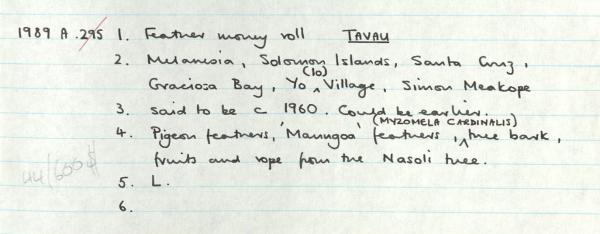 1989 A .295 1. Feather money roll TAVAU
2. Melanesia, Solomon Islands, Santa Cruz,
Graciosa Bay, Yo (lo) Village, Simon Meakope
3. said to be c 1960. Could be earlier.
4. Pigeon feathers, 'Maungoa' feathers (MYZOMELA CARDINALIS), tree bark,
fruits and rope from the Nasoli tree.
5. L.
6.